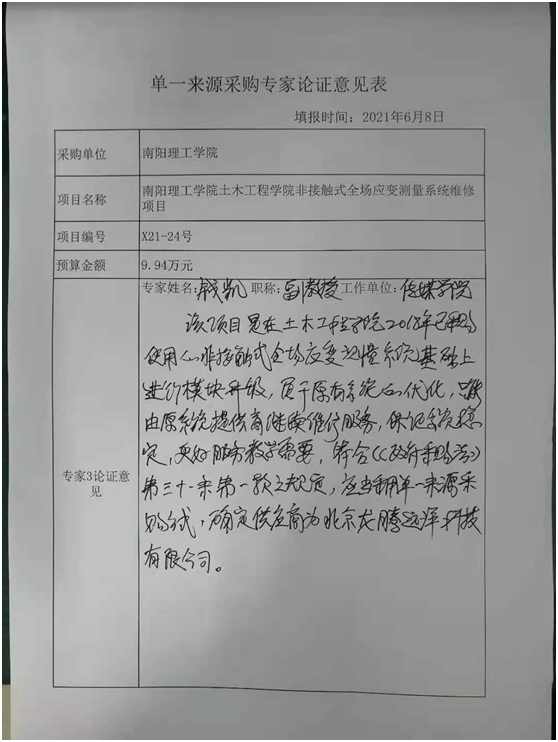 单一来源采购专家论证意见表
填报时间：2021年6月8日
采购单位 南阳理工学院
项目名称 南阳理工学院土木工程学院非接触式全场应变测量系统维修
项目
项目编号 X21-24号
预算金额 9.94万元
专家姓名：钱凯 职称：副教授 工作单位：传媒学院
该项目是在土木工程学院2018年已采购
使用的非接触式全场应变测量系统基础上
进行模块升级，属于原有系统的优化，只能
由原系统提供商继续维修服务，保证系统稳
定，更好服务教学需要，符合《政府采购法》
第三十一条第一款之规定，应当采用单一来源采
购方式，确定供应商为北京龙腾远洋科技
有限公司。
专家3论证意
见